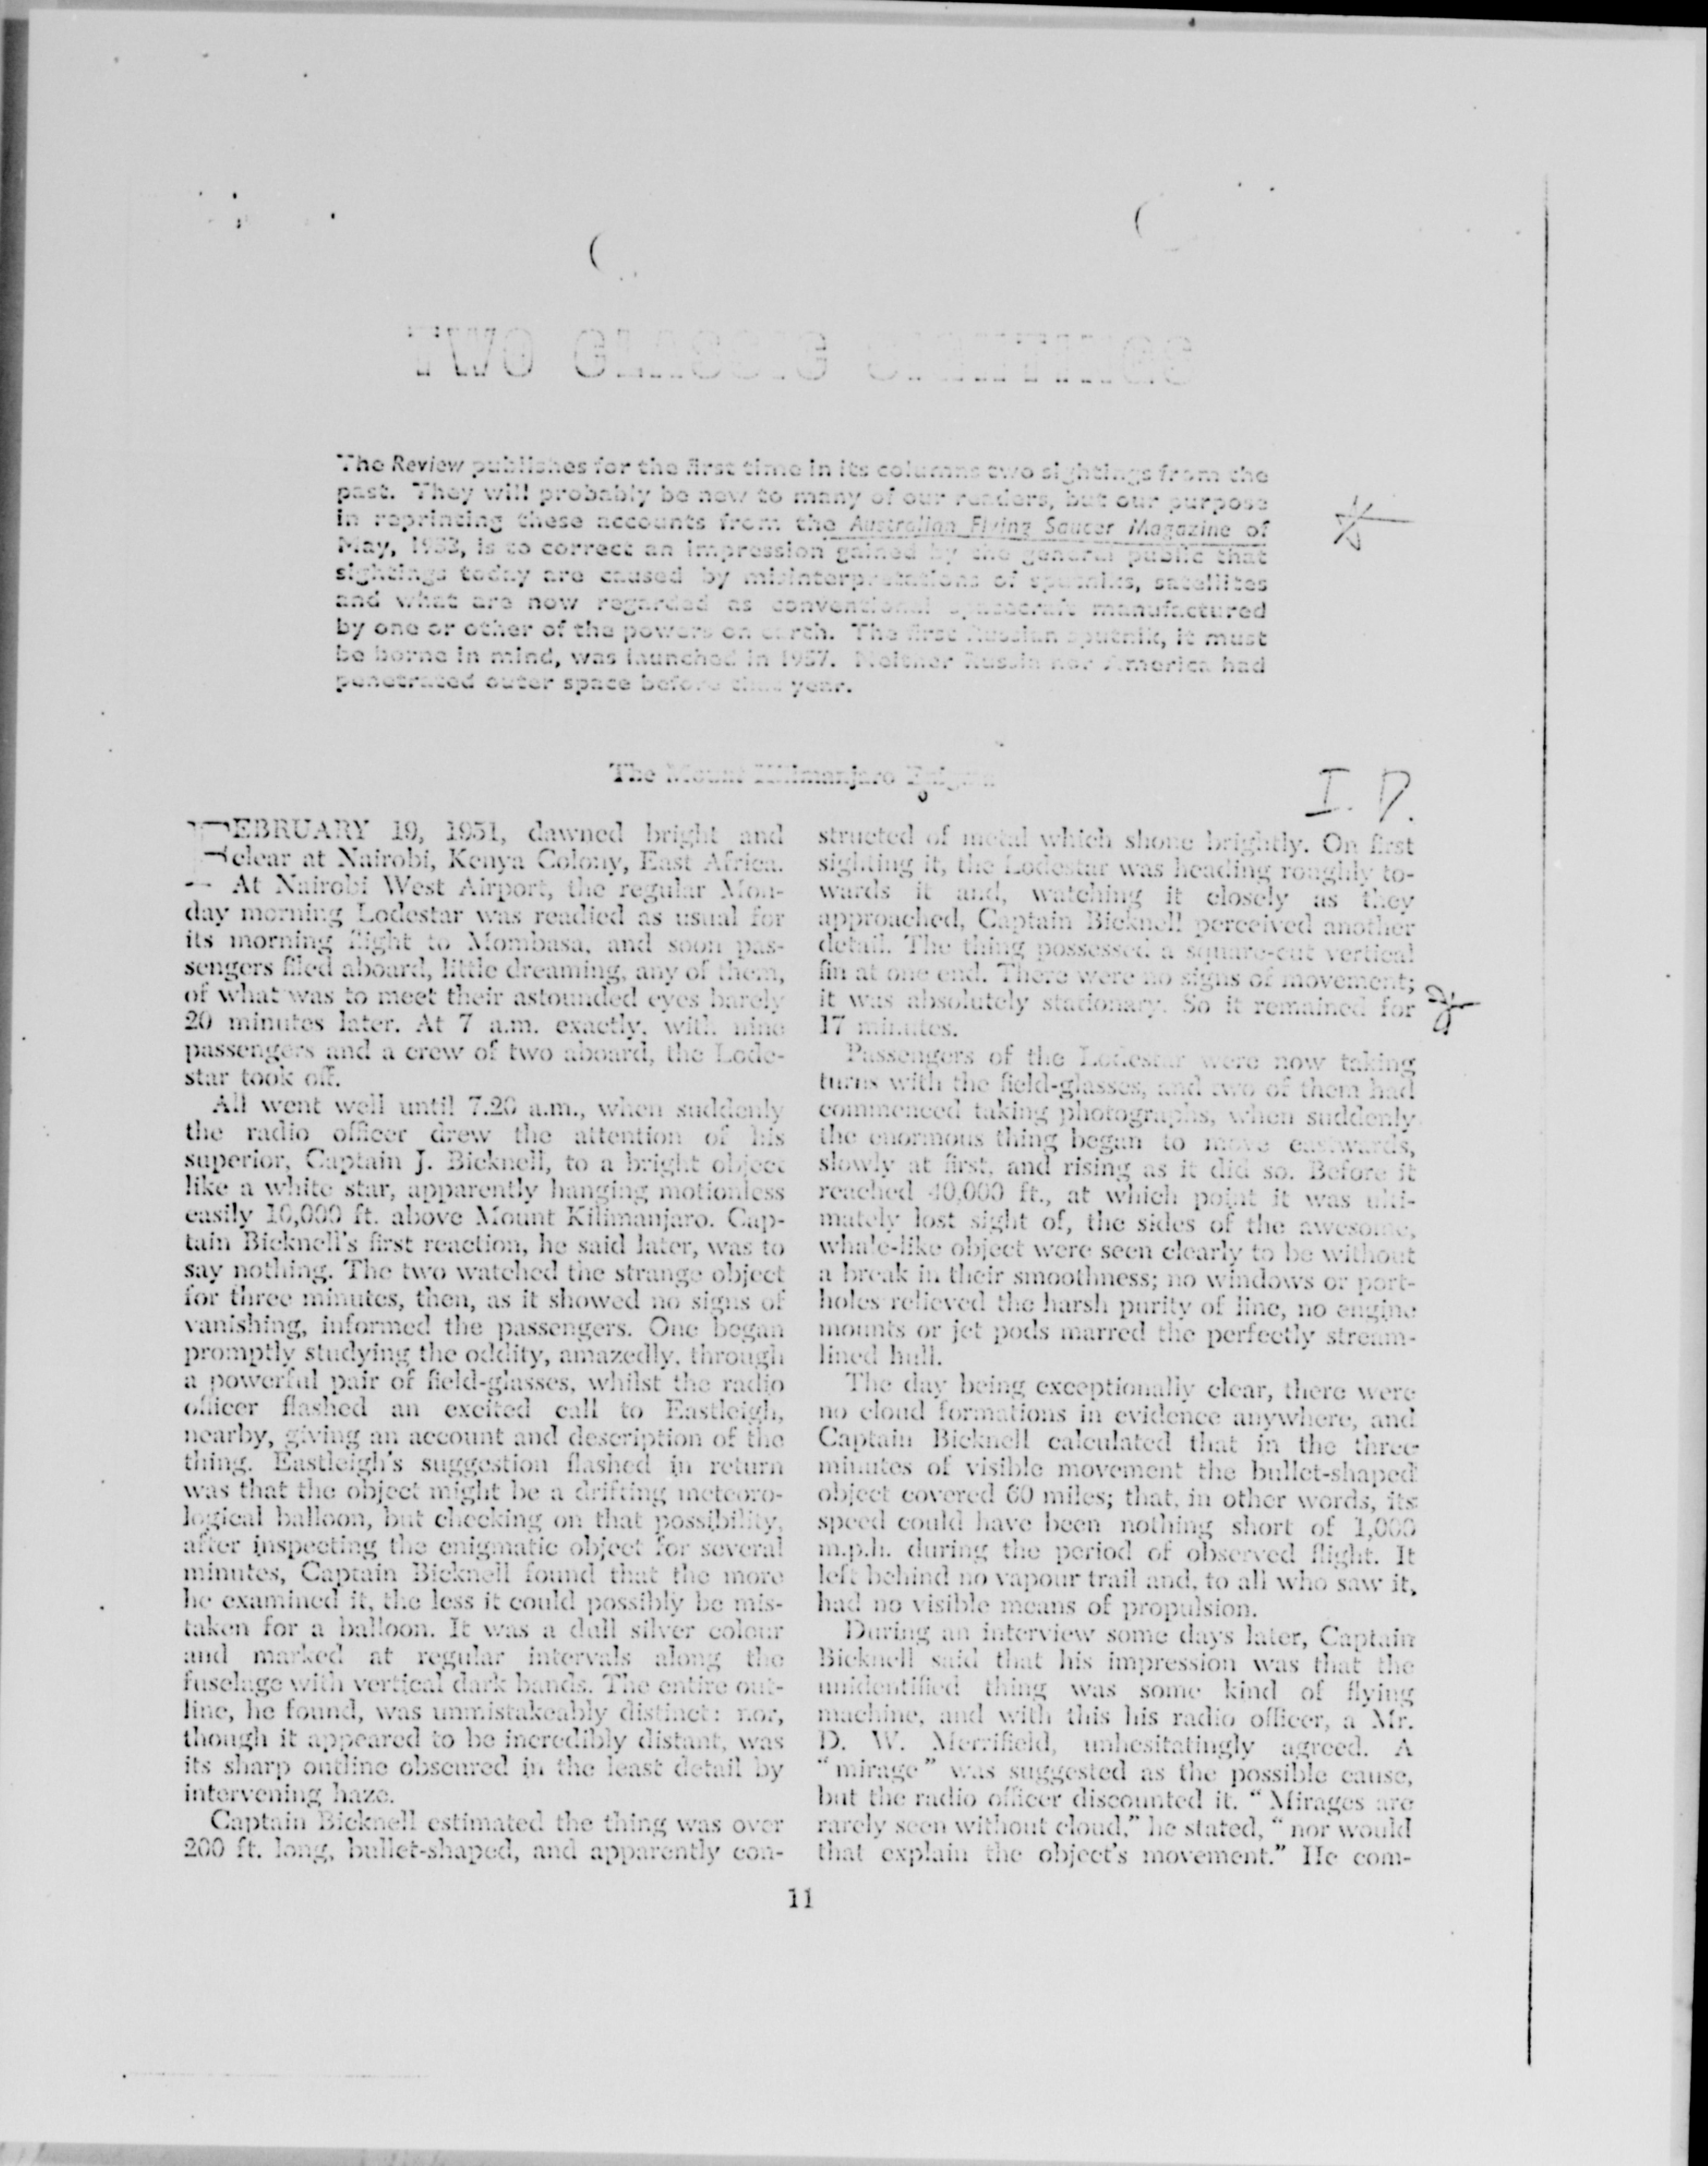 TWO CLASSIC SIGHTINGS
The Review publishes for the first time in its columns two sightings from the
past. They will probably be new to many of our readers, but our purpose
in reprinting these accounts from the Australian Flying Saucer Magazine of
May, 1953, is to correct an impression gained by the general public that
sightings today are caused by misinterpretations of sputniks, satellites
and what are now regarded as conventional spacecraft manufactured
by one or other of the powers on earth. The first Russian sputnik, it must
be borne in mind, was launched in 1957. Neither Russia nor America had
penetrated outer space before that year.
The Mount Kilimanjaro Enigma
I. D.
FEBRUARY 19, 1951, dawned bright and
clear at Nairobi, Kenya Colony, East Africa.
At Nairobi West Airport, the regular Mon-
day morning Lodestar was readied as usual for
its morning flight to Mombasa, and soon pas-
sengers filed aboard, little dreaming, any of them,
of what was to meet their astounded eyes barely
20 minutes later. At 7 a.m. exactly, with nine
passengers and a crew of two aboard, the Lode-
star took off.
All went well until 7.20 a.m., when suddenly
the radio officer drew the attention of his
superior, Captain J. Bicknell, to a bright object
like a white star, apparently hanging motionless
easily 10,000 ft. above Mount Kilimanjaro. Cap-
tain Bicknell's first reaction, he said later, was to
say nothing. The two watched the strange object
for three minutes, then, as it showed no signs of
vanishing, informed the passengers. One began
promptly studying the oddity, amazedly, through
a powerful pair of field-glasses, whilst the radio
officer flashed an excited call to Eastleigh,
nearby, giving an account and description of the
thing. Eastleigh's suggestion flashed in return
was that the object might be a drifting meteoro-
logical balloon, but checking on that possibility,
after inspecting the enigmatic object for several
minutes, Captain Bicknell found that the more
he examined it, the less it could possibly be mis-
taken for a balloon. It was a dull silver colour
and marked at regular intervals along the
fuselage with vertical dark bands. The entire out-
line, he found, was unmistakeably distinct: nor,
though it appeared to be incredibly distant, was
its sharp outline obscured in the least detail by
intervening haze.
Captain Bicknell estimated the thing was over
200 ft. long, bullet-shaped, and apparently con-
structed of metal which shone brightly. On first
sighting it, the Lodestar was heading roughly to-
wards it and, watching it closely as they
approached, Captain Bicknell perceived another
detail. The thing possessed a square-cut vertical
fin at one end. There were no signs of movement;
it was absolutely stationary. So it remained for
17 minutes.
Passengers of the Lodestar were now taking
turns with the field-glasses, and two of them had
commenced taking photographs, when suddenly
the enormous thing began to move eastwards,
slowly at first, and rising as it did so. Before it
reached 40,000 ft., at which point it was ulti-
mately lost sight of, the sides of the awesome,
whale-like object were seen clearly to be without
a break in their smoothness; no windows or port-
holes relieved the harsh purity of line, no engine
mounts or jet pods marred the perfectly stream-
lined hull.
The day being exceptionally clear, there were
no cloud formations in evidence anywhere, and
Captain Bicknell calculated that in the three
minutes of visible movement the bullet-shaped
object covered 60 miles; that, in other words, its
speed could have been nothing short of 1,000
m.p.h. during the period of observed flight. It
left behind no vapour trail and, to all who saw it,
had no visible means of propulsion.
During an interview some days later, Captain
Bicknell said that his impression was that the
unidentified thing was some kind of flying
machine, and with this his radio officer, a Mr.
D. W. Merrifield, unhesitatingly agreed. A
"mirage" was suggested as the possible cause,
but the radio officer discounted it. "Mirages are
rarely seen without cloud," he stated, "nor would
that explain the object's movement." He com-
11